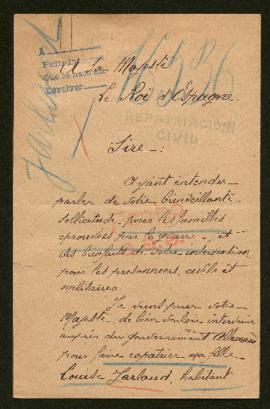 A Sa Majesté
Le Roi d'Espagne
REPATRIACION
CIVIL
Sire -
Ayant entendu
parler de votre bienveillante
sollicitude, pour les familles
éprouvées par la guerre, et
des bienfaits de votre intervention
pour les prisonniers, civils et
militaires.
Je viens prier votre
Majesté, de bien vouloir intervenir
auprès du gouvernement Allemand
pour faire rapatrier ma fille
Louise Jarlaud, habitant